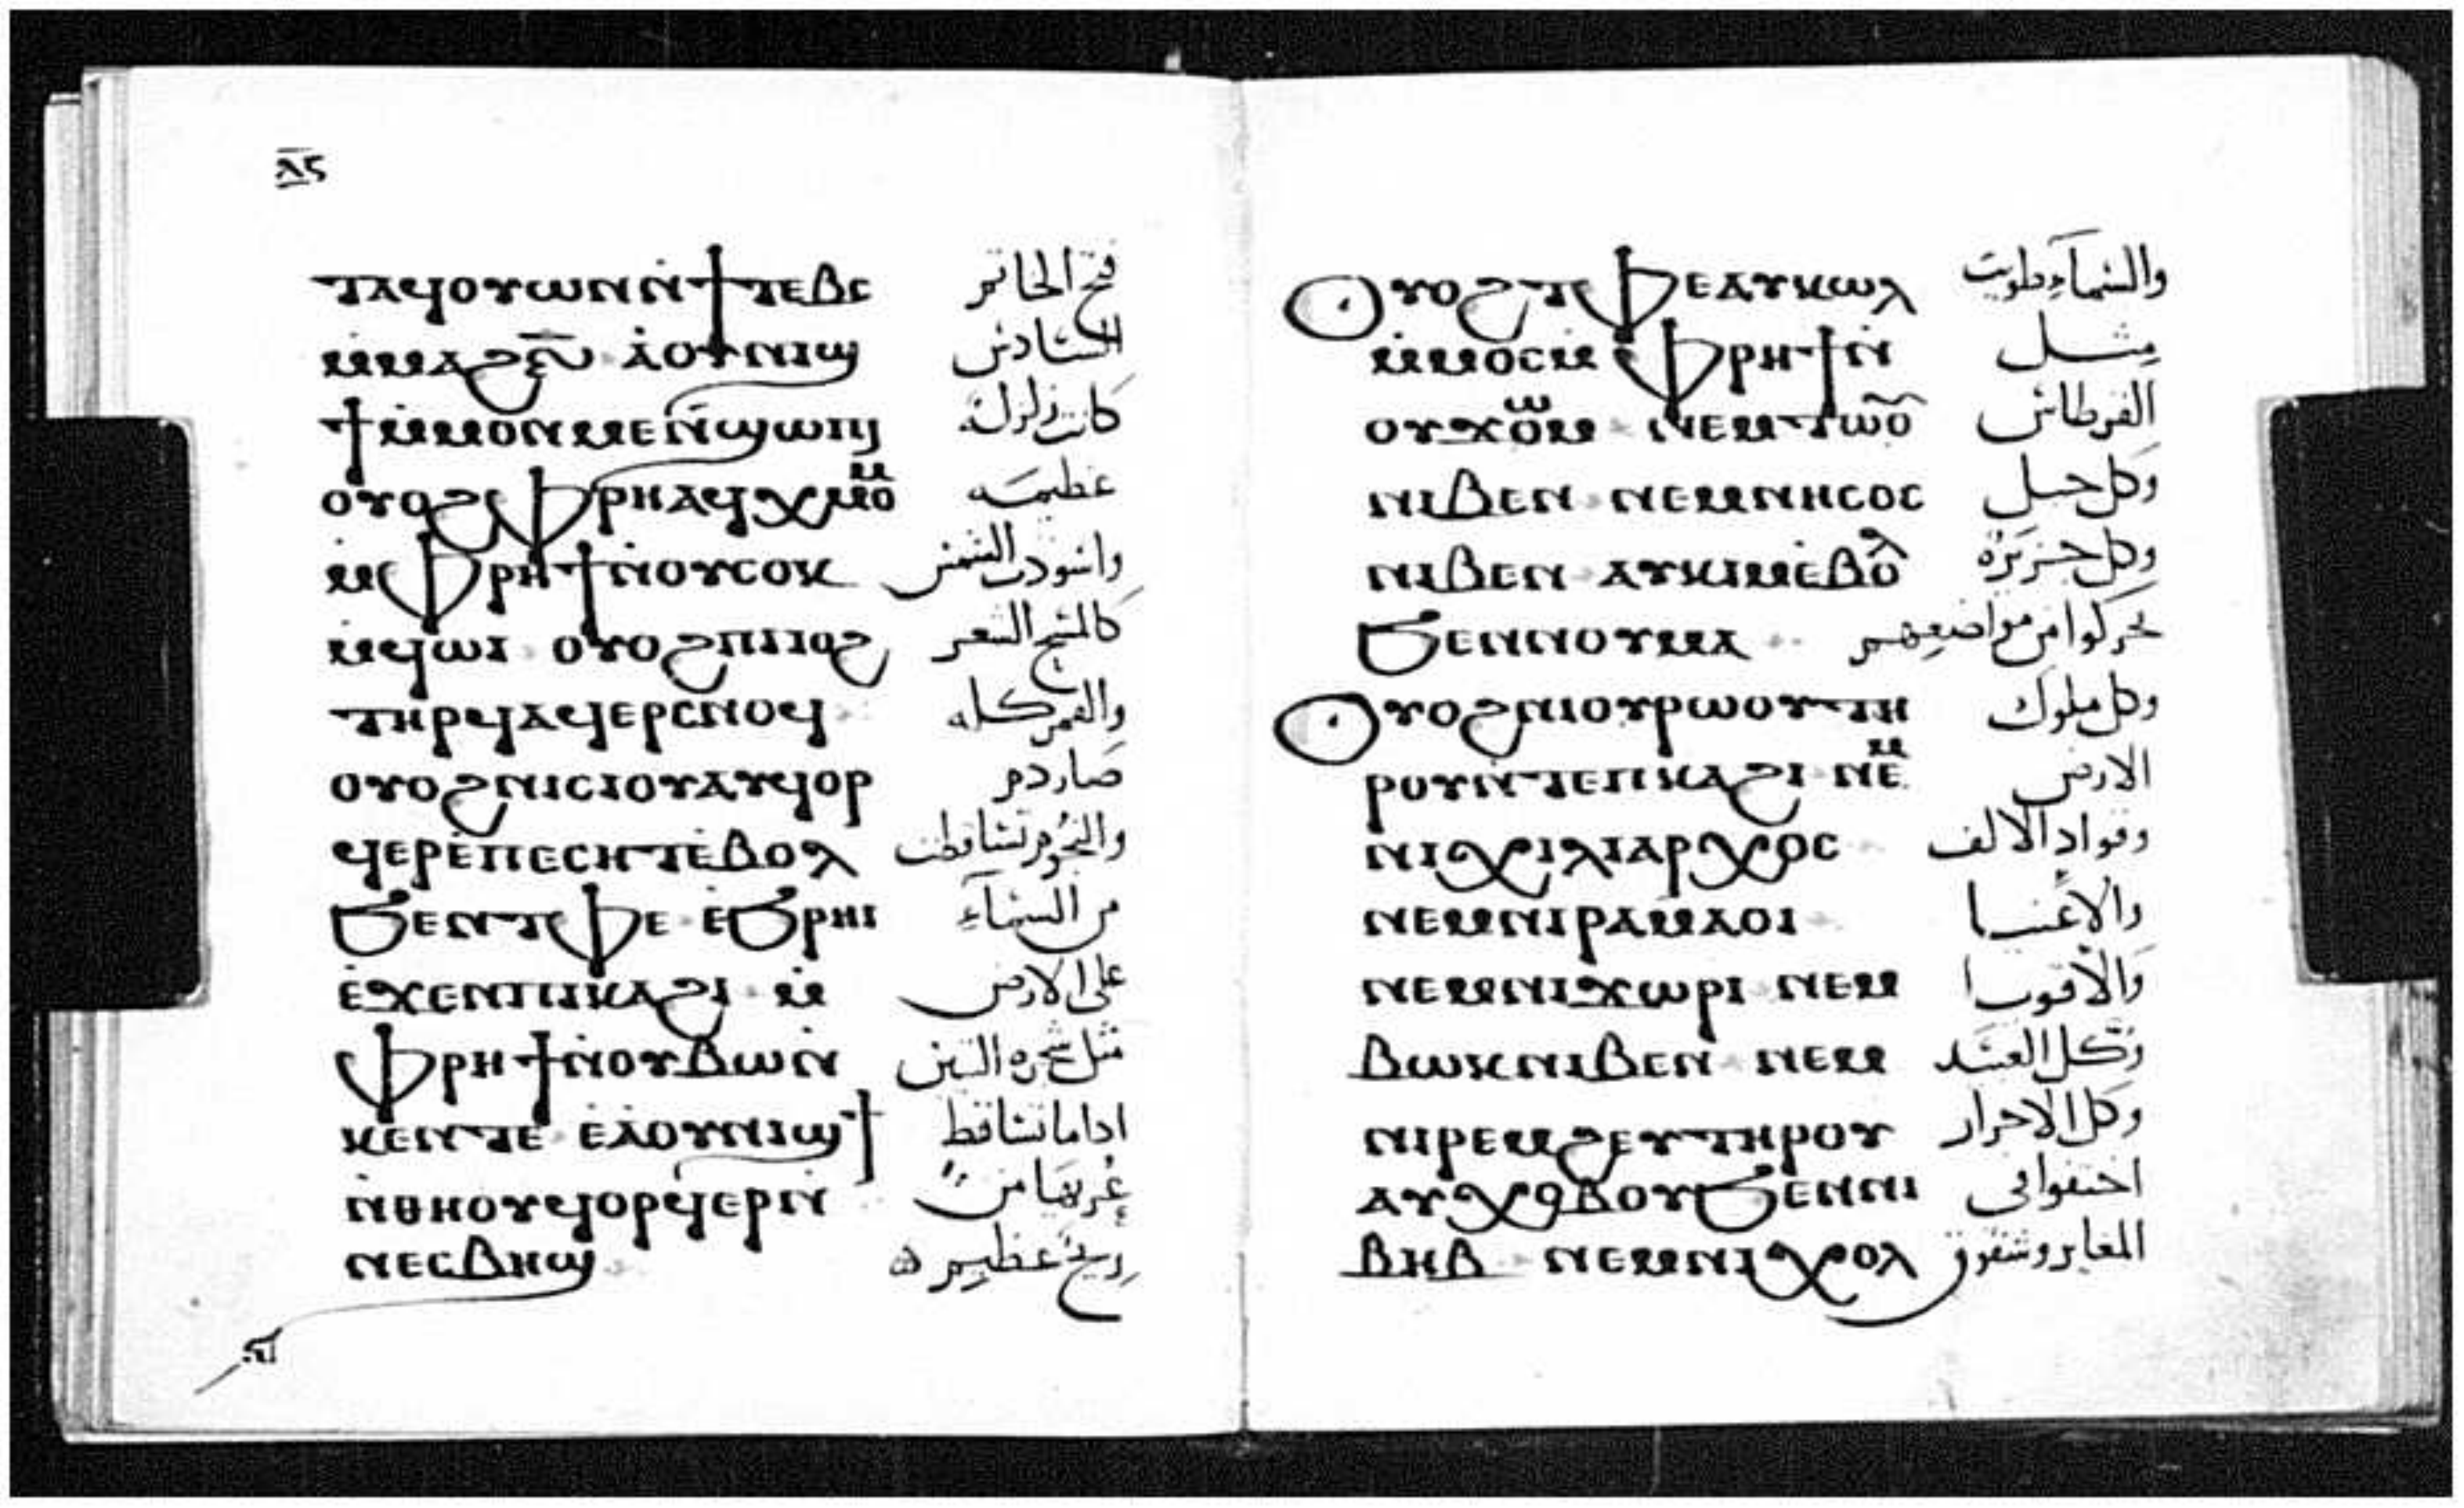 ⲗ̅ⲋ
ⲧⲁϥⲟⲩⲱⲛ ⲛ̇ϯⲧⲉⲃⲥ فتح الخاتم
ⲙ̇ⲙⲁϩⲋ̅ ⲁ̇ⲟⲩⲛⲓϣ السادس
ϯⲙ̇ⲙⲟⲛⲙⲉⲛ ϣⲱⲡⲓ كانت زلزلة
ⲟⲩⲟϩ ⲫⲣⲏ ⲁϥⲭⲙⲟⲙ عظيمه
ⲙ̇ⲫⲣⲏϯ ⲛ̇ⲟⲩⲥⲟⲕ واسودت الشمس
ⲙ̇ϥⲱⲓ ⲟⲩⲟϩ ⲡⲓⲓⲟϩ كالمسح الشعر
ⲧⲏⲣϥ ⲁϥⲉⲣⲥⲛⲟϥ والقمر كله
ⲟⲩⲟϩ ⲛⲓⲥⲓⲟⲩ ⲁⲩϥⲟⲣ صار دم
ϥⲉⲣ ⲉ̇ⲡⲉⲥⲏⲧ ⲉ̇ⲃⲟⲗ والنجوم تساقطت
ϧⲉⲛ ⲧⲫⲉ ⲉ̇ϧⲣⲏⲓ من السمآء
ⲉ̇ϫⲉⲛ ⲡⲓⲕⲁϩⲓ ⲙ̇ على الارض
ⲫⲣⲏϯ ⲛ̇ⲟⲩⲃⲱⲛ̇ مثل شجره التين
ⲕⲉⲛⲧⲉ ⲉ̇ⲁⲟⲩⲛⲓϣϯ اداما تساقط
ⲛ̇ⲑⲏⲟⲩ ϥⲟⲣϥⲉⲣ ⲛ̇ من
ⲛⲉⲥⲃⲏϣ ريح عظيمه
ⲟⲩⲟϩ ⲧⲫⲉ ⲁⲩⲕⲱⲗ والسمآء طويت
ⲙ̇ⲙⲟⲥ ⲙ̇ⲫⲣⲏϯ ⲛ̇ مثل
ⲟⲩϫⲱⲙ ⲛⲉⲙ ⲧⲱⲟⲩ القرطاس
ⲛⲓⲃⲉⲛ ⲛⲉⲙ ⲛⲏⲥⲟⲥ وكل جبل
ⲛⲓⲃⲉⲛ ⲁⲩⲕⲓⲙ ⲉ̇ⲃⲟⲗ وكل جزيرة
ϧⲉⲛ ⲛⲟⲩⲙⲁ تحركوا من مواضعهم
ⲟⲩⲟϩ ⲛⲓⲟⲩⲣⲱⲟⲩ ⲧⲏ وكل ملوك
ⲣⲟⲩ ⲛ̇ⲧⲉ ⲡⲕⲁϩⲓ ⲛⲉⲙ الارض
ⲛⲓⲭⲓⲗⲓⲁⲣⲭⲟⲥ وقواد الالف
ⲛⲉⲙ ⲛⲓⲣⲁⲙⲁⲟⲓ والاغنيا
ⲛⲉⲙ ⲛⲓϫⲱⲣⲓ ⲛⲉⲙ والاقويا
ⲃⲱⲕ ⲛⲓⲃⲉⲛ ⲛⲉⲙ وكل العبيد
ⲛⲓⲣⲉⲙϩⲉⲩ ⲧⲏⲣⲟⲩ وكل الاحرار
ⲁⲩⲭⲟⲡⲟⲩ ϧⲉⲛ ⲛⲓ اختفوا في
ⲃⲏⲃ ⲛⲉⲙ ⲛⲓⲭⲟⲗ المغاير وشقوق